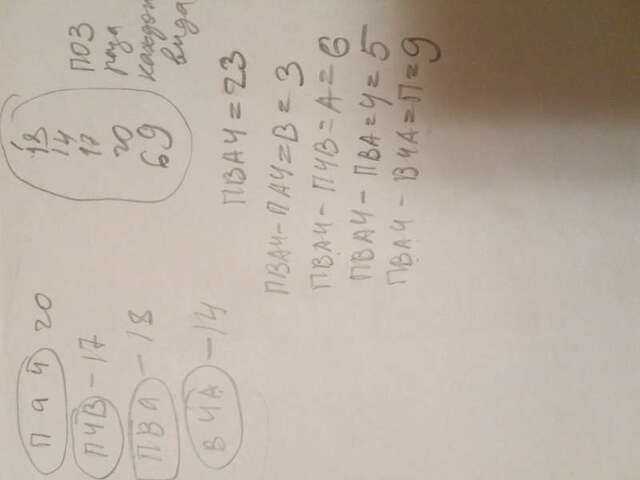 ПАЧ 20
ПЧВ - 17
ПВА - 18
ВЧА - 14
18
14
17
20
69
ПО 3
раза
каждого
вида
ПВАЧ = 23
ПВАЧ - ПАЧ = В = 3
ПВАЧ - ПЧВ = А = 6
ПВАЧ - ПВА = Ч = 5
ПВАЧ - ВЧА = П = 9